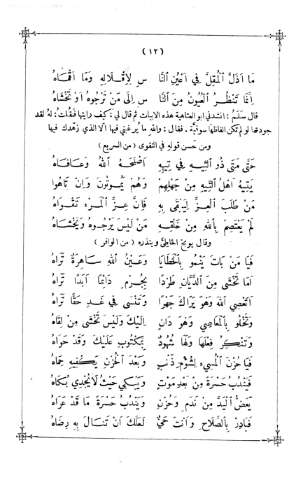 (١٢)
مَا أَذَلَّ الْمُقِلَّ فِي أَعْيُنِ النَّا سِ لِإِقْلَالِهِ وَمَا أَقْمَاهُ
إِنَّمَا تَنْظُرُ الْعُيُونُ مِنَ النَّا سِ إِلَى مَنْ تَرْجُوهُ أَوْ تَخْشَاهُ
قال سَلَم: انشدني ابو العتاهية هذه الابيات ثم قال لي: كيف رايتها فقلتُ: له لقد
جودتها لو لم تكن الفاظها سوقيّة. فقال: والله ما يرغّبني فيها الا الذي زهّدك فيها
ومن حسن قوله في التقوى (من السريع)
حَتَّى مَتَى ذُو التِّيهِ فِي تِيهِهِ أَصْلَحَهُ اللهُ وَعَافَاهُ
يَتِيهُ أَهْلُ التِّيهِ مِنْ جَهْلِهِمْ وَهُمْ يَمُوتُونَ وَإِنْ تَاهُوا
مَنْ طَلَبَ الْعِزَّ لِيَبْقَى بِهِ فَإِنَّ عِزَّ الْمَرْءِ تَقْوَاهُ
لَمْ يَعْتَصِمْ بِاللهِ مِنْ خَلْقِهِ مَنْ لَيْسَ يَرْجُوهُ وَيَخْشَاهُ
وقال يوبخ الخاطئ وينذره (من الوافر)
فَيَا مَنْ بَاتَ يَنْمُو بِالْخَطَايَا وَعَيْنُ اللهِ سَاهِرَةٌ تَرَاهُ
أَمَا تَخْشَى مِنَ الدَّيَّانِ طَرْدًا بِجُرْمٍ دَائِمًا أَبَدًا تَرَاهُ
أَتَعْصِي اللهَ وَهُوَ يَرَاكَ جَهْرًا وَتَنْسَى فِي غَدٍ حَقًّا تَرَاهُ
وَتَخْلُو بِالْمَعَاصِي وَهُوَ دَانٍ إِلَيْكَ وَلَيْسَ تَخْشَى مِنْ لِقَاهُ
وَتُنْكِرُ فِعْلَهَا وَلَهَا شُهُودٌ بِمَكْتُوبٍ عَلَيْكَ وَقَدْ حَوَاهُ
فَيَا حُزْنَ الْمُسِيءِ لِشُؤْمِ ذَنْبٍ وَبَعْدَ الْحُزْنِ يَكْفِيهِ حِمَاهُ
فَيَنْدُبُ حَسْرَةً مِنْ بَعْدِ مَوْتٍ وَيَبْكِي حَيْثُ لَا يُجْدِي بُكَاهُ
يَعَضُّ الْيَدَ مِنْ نَدَمٍ وَحُزْنٍ وَيَنْدُبُ حَسْرَةً مَا قَدْ عَرَاهُ
فَبَادِرْ بِالصَّلَاحِ وَأَنْتَ حَيٌّ لَعَلَّكَ أَنْ تَنَالَ بِهِ رِضَاهُ